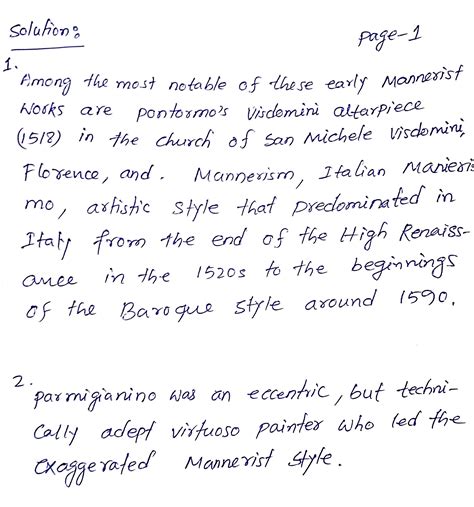 Solution:
page-1
1.
Among the most notable of these early Mannerist
works are pontormo's Visdomini altarpiece
(1518) in the church of San Michele Visdomini,
Florence, and. Mannerism, Italian Manieris
mo, artistic style that predominated in
Italy from the end of the High Renaiss-
ance in the 1520s to the beginnings
of the Baroque style around 1590.
2.
parmigianino was an eccentric, but techni-
cally adept virtuoso painter who led the
exaggerated Mannerist style.